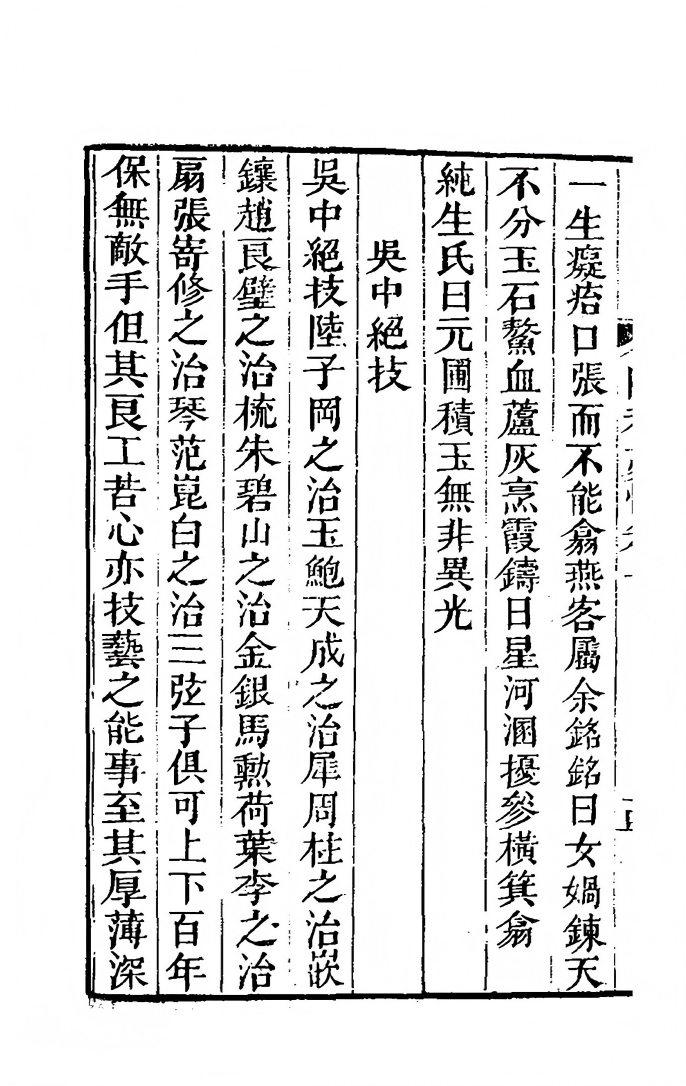 一生癡㾡口張而不能翕燕客屬余銘銘曰女媧鍊天
不分玉石鰲血蘆灰烹霞鑄日星河溷擾參橫箕翕
純生氏曰元圃積玉無非異光
吳中絕技
吳中絕技陸子岡之治玉鮑天成之治犀周柱之治嵌
鑲趙良璧之治梳朱碧山之治金銀馬勳荷葉李之治
扇張寄修之治琴范崑白之治三弦子俱可上下百年
保無敵手但其良工苦心亦技藝之能事至其厚薄深